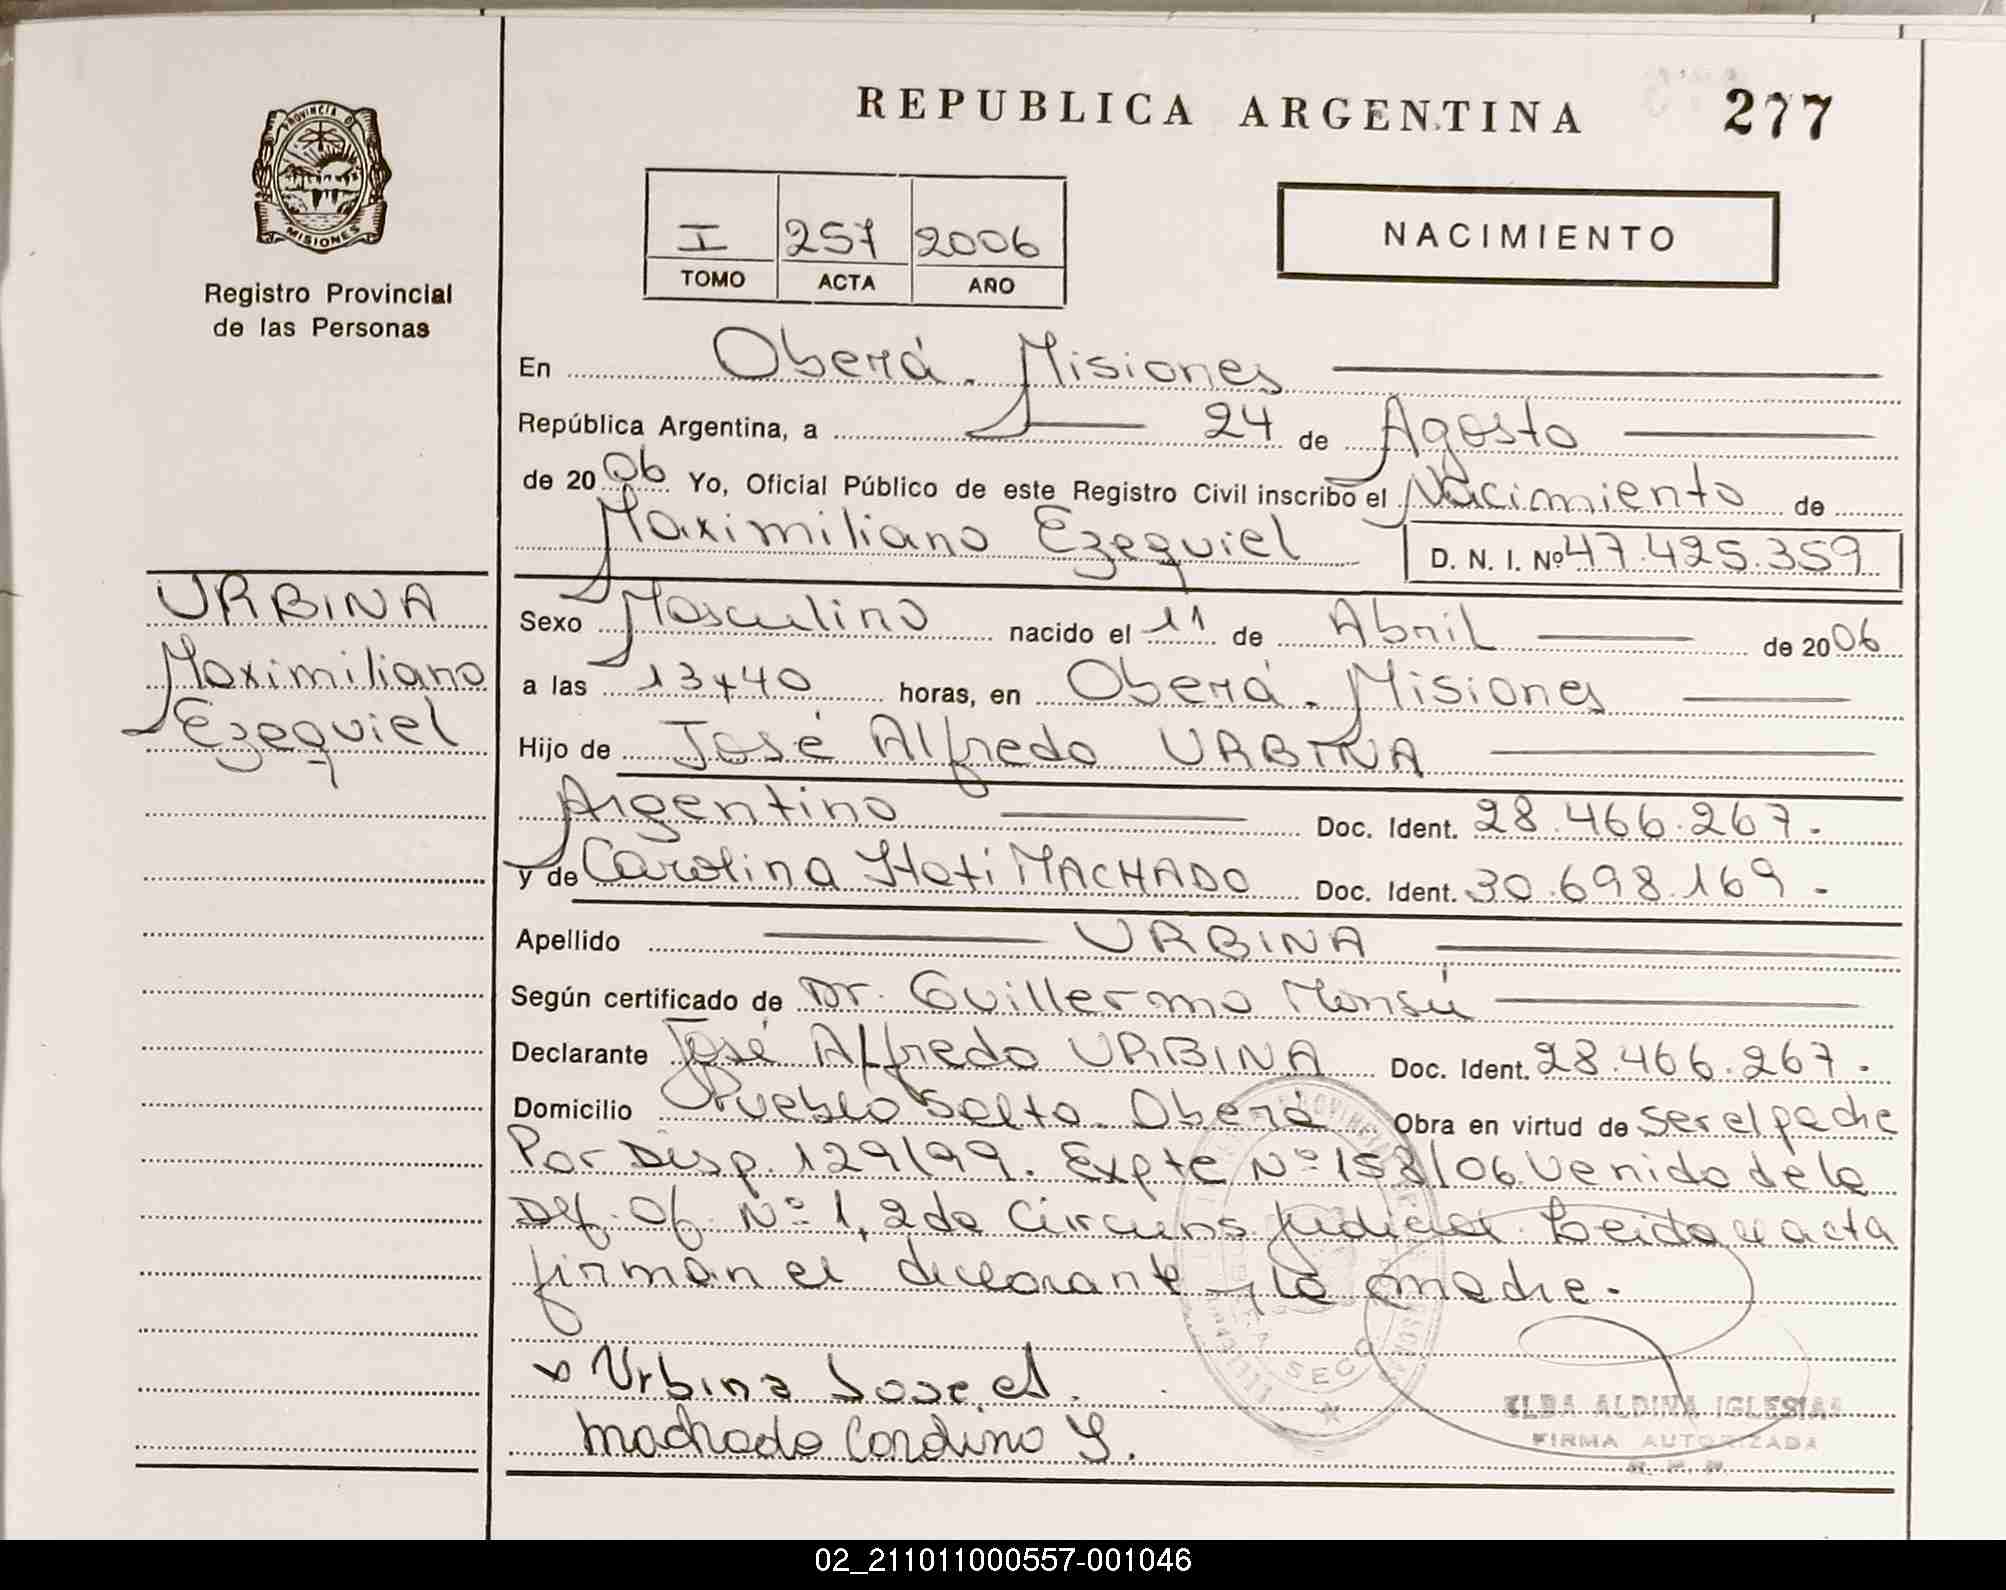 REPUBLICA ARGENTINA 277
PROVINCIA D
MISIONES
Registro Provincial
de las Personas
I 257 2006
TOMO ACTA AÑO
NACIMIENTO
En Oberá. Misiones
República Argentina, a 24 de Agosto
de 2006 Yo, Oficial Público de este Registro Civil inscribo el Nacimiento de
Maximiliano Ezequiel D. N. I. Nº 47.425.359
URBINA
Maximiliano
Ezequiel
Sexo Masculino nacido el 11 de Abril de 2006
a las 13y40 horas, en Oberá. Misiones
Hijo de José Alfredo URBINA
Argentino Doc. Ident. 28.466.267.
y de Carolina Itatí MACHADO Doc. Ident. 30.698.169.
Apellido URBINA
Según certificado de Dr. Guillermo Monsú
Declarante José Alfredo URBINA Doc. Ident. 28.466.267.
Domicilio Pueblo Salto. Oberá Obra en virtud de ser el padre
Por Disp. 129/99. Expte Nº 153/06 Venido de la
Def. Of. Nº 1, 2da Circuns Judicial. Leida el acta
firman el declarante y la madre.
Urbina Jose A.
Machado Carolina Y.
ELBA ALDINA IGLESIAS
FIRMA AUTORIZADA
R. P. P.
02_211011000557-001046